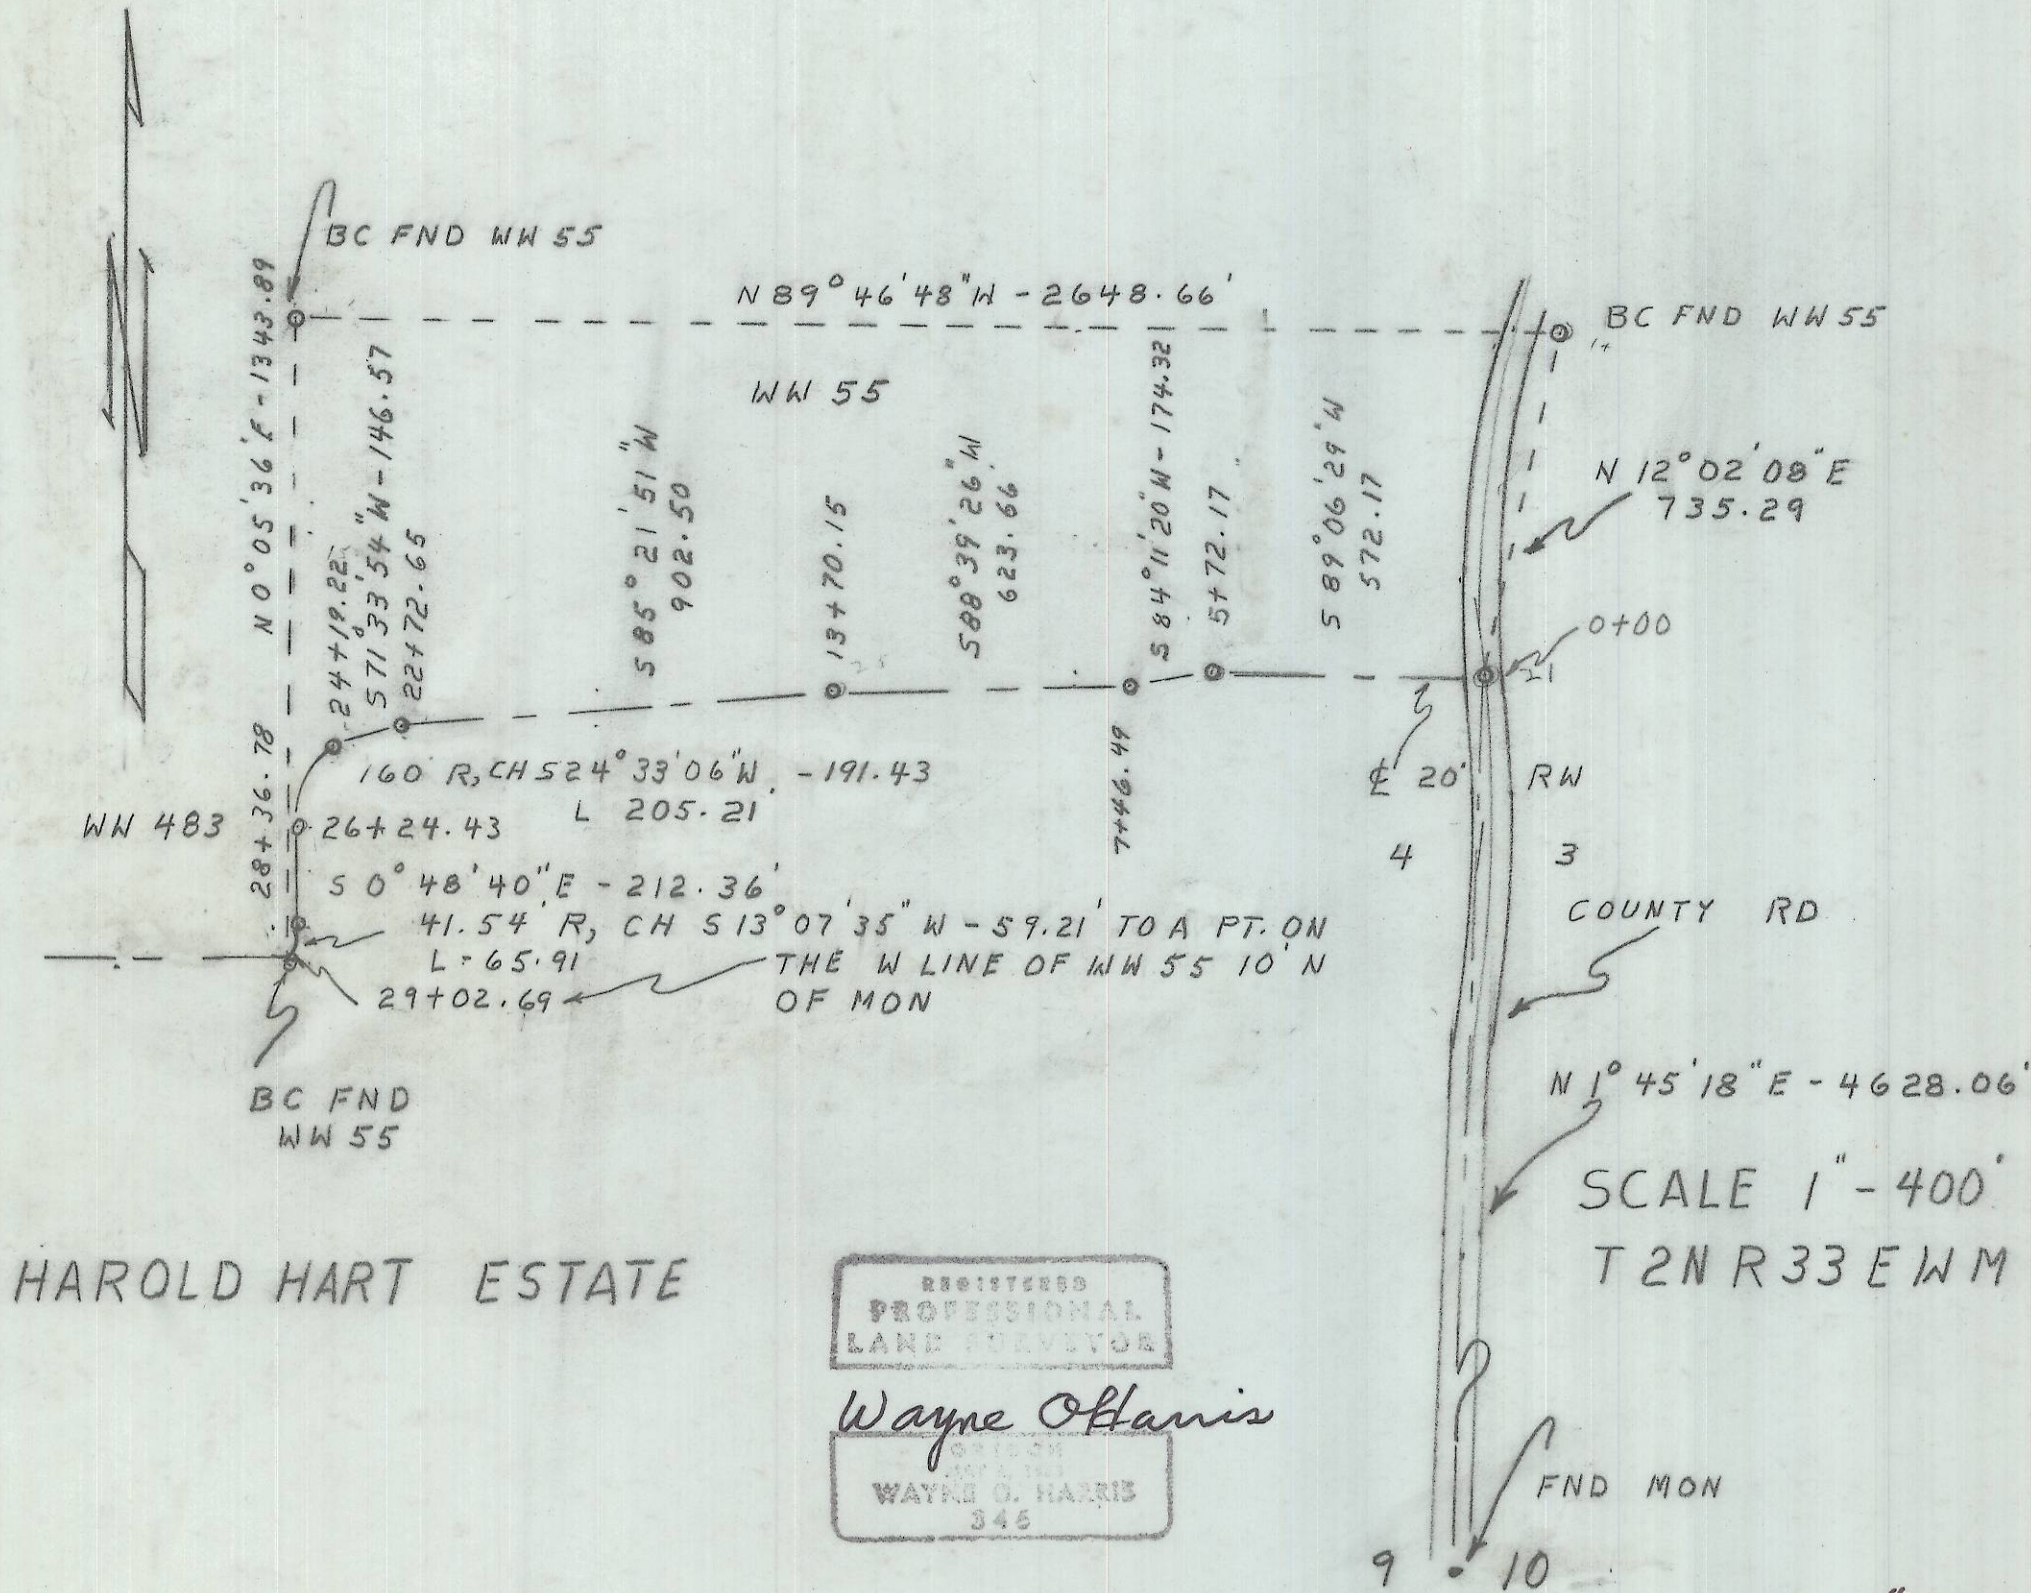 BC FND WW 55
N 89° 46' 48" W - 2648.66'
BC FND WW 55
WW 55
N 0° 05' 36" E - 1343.89
24+19.22
S 71° 33' 54" W - 146.57
22+72.65
S 85° 21' 51" W
902.50
13+70.15
S 88° 39' 26" W
623.66
S 84° 11' 20" W - 174.32
5+72.17
S 89° 06' 29" W
572.17
N 12° 02' 08" E
735.29
0+00
7+46.49
160' R, CH S 24° 33' 06" W - 191.43
L 205.21
℄ 20' RW
28+36.78
WW 483
26+24.43
4
3
S 0° 48' 40" E - 212.36'
41.54' R, CH S 13° 07' 35" W - 59.21' TO A PT. ON
L = 65.91
THE W LINE OF WW 55 10' N
29+02.69
OF MON
COUNTY RD
BC FND
WW 55
N 1° 45' 18" E - 4628.06'
SCALE 1" - 400'
T 2N R 33 E W M
HAROLD HART ESTATE
REGISTERED
PROFESSIONAL
LAND SURVEYOR
Wayne O Harris
OREGON
WAYNE O. HARRIS
346
FND MON
9
10